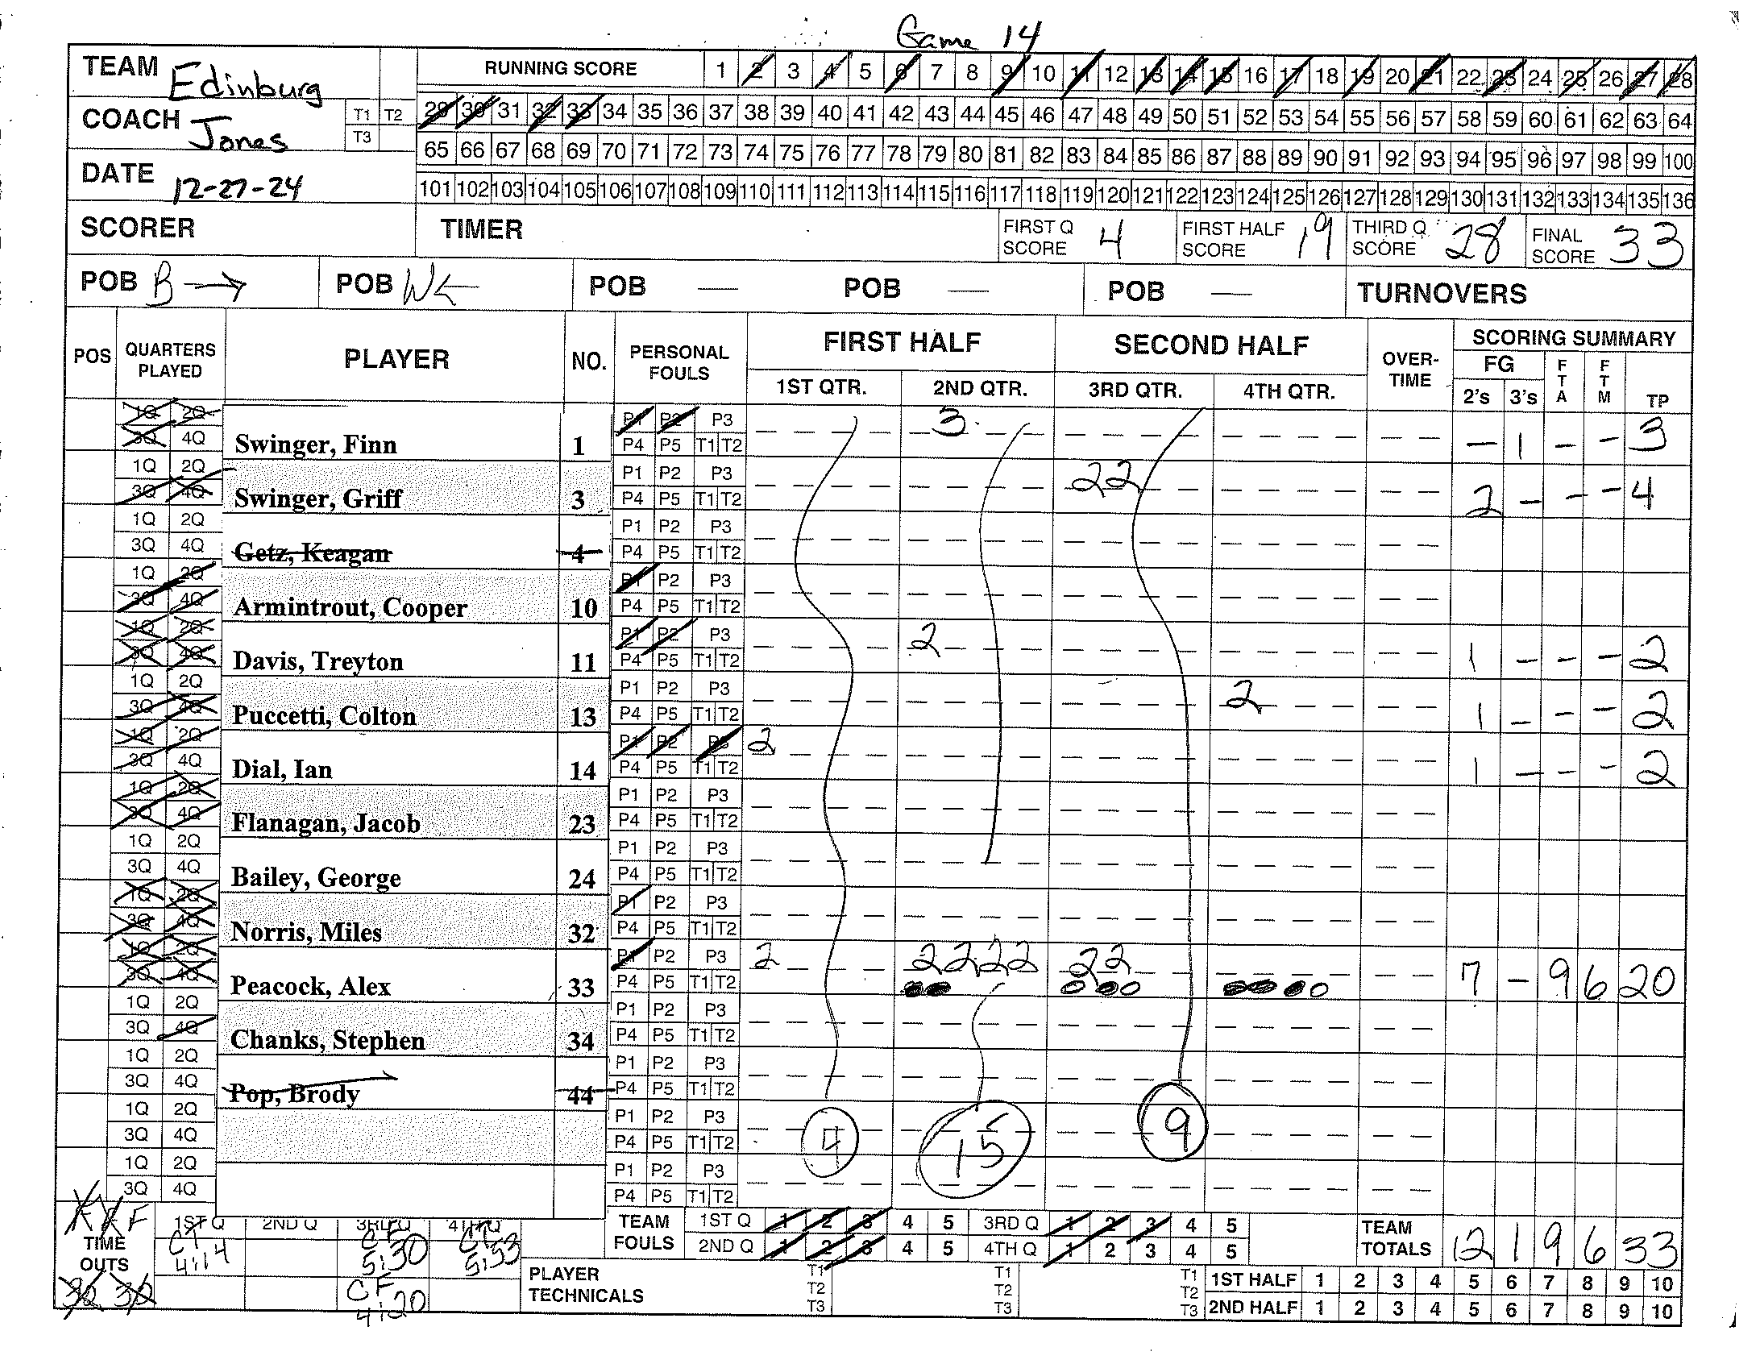 Game 14
TEAM Edinburg RUNNING SCORE 1 2 3 4 5 6 7 8 9 10 11 12 13 14 15 16 17 18 19 20 21 22 23 24 25 26 27 28
COACH Jones T1 T2 T3 29 30 31 32 33 34 35 36 37 38 39 40 41 42 43 44 45 46 47 48 49 50 51 52 53 54 55 56 57 58 59 60 61 62 63 64
65 66 67 68 69 70 71 72 73 74 75 76 77 78 79 80 81 82 83 84 85 86 87 88 89 90 91 92 93 94 95 96 97 98 99 100
DATE 12-27-24 101 102 103 104 105 106 107 108 109 110 111 112 113 114 115 116 117 118 119 120 121 122 123 124 125 126 127 128 129 130 131 132 133 134 135 136
SCORER TIMER FIRST Q SCORE 4 FIRST HALF SCORE 19 THIRD Q SCORE 28 FINAL SCORE 33
POB B → POB W ← POB — POB — POB — TURNOVERS
POS QUARTERS PLAYED PLAYER NO. PERSONAL FOULS FIRST HALF SECOND HALF OVER-TIME SCORING SUMMARY
1ST QTR. 2ND QTR. 3RD QTR. 4TH QTR. FG 2's 3's FTA FTM TP
1Q 2Q P1 P2 P3 3
3Q 4Q Swinger, Finn 1 P4 P5 T1 T2 – 1 – – 3
1Q 2Q P1 P2 P3 2 2
3Q 4Q Swinger, Griff 3 P4 P5 T1 T2 2 – – – 4
1Q 2Q P1 P2 P3
3Q 4Q Getz, Keagan 4 P4 P5 T1 T2
1Q 2Q P1 P2 P3
3Q 4Q Armintrout, Cooper 10 P4 P5 T1 T2
1Q 2Q P1 P2 P3 2
3Q 4Q Davis, Treyton 11 P4 P5 T1 T2 1 – – – 2
1Q 2Q P1 P2 P3 2
3Q 4Q Puccetti, Colton 13 P4 P5 T1 T2 1 – – – 2
1Q 2Q P1 P2 P3 2
3Q 4Q Dial, Ian 14 P4 P5 T1 T2 1 – – 2
1Q 2Q P1 P2 P3
3Q 4Q Flanagan, Jacob 23 P4 P5 T1 T2
1Q 2Q P1 P2 P3
3Q 4Q Bailey, George 24 P4 P5 T1 T2
1Q 2Q P1 P2 P3
3Q 4Q Norris, Miles 32 P4 P5 T1 T2
1Q 2Q P1 P2 P3 2 2 2 2 2 2 2
3Q 4Q Peacock, Alex 33 P4 P5 T1 T2 7 – 9 6 20
1Q 2Q P1 P2 P3
3Q 4Q Chanks, Stephen 34 P4 P5 T1 T2
1Q 2Q P1 P2 P3
3Q 4Q Pop, Brody 44 P4 P5 T1 T2
1Q 2Q P1 P2 P3
3Q 4Q P4 P5 T1 T2 4 15 9
1Q 2Q P1 P2 P3
3Q 4Q P4 P5 T1 T2
F F F TIME OUTS 30 30
1ST Q 2ND Q 3RD Q 4TH Q
CT 4:14 CF 5:30 CT 5:53
CF 4:20
TEAM FOULS 1ST Q 1 2 3 4 5 3RD Q 1 2 3 4 5
2ND Q 1 2 3 4 5 4TH Q 1 2 3 4 5
TEAM TOTALS 12 1 9 6 33
PLAYER TECHNICALS T1 T2 T3 T1 T2 T3 T1 T2 T3
1ST HALF 1 2 3 4 5 6 7 8 9 10
2ND HALF 1 2 3 4 5 6 7 8 9 10